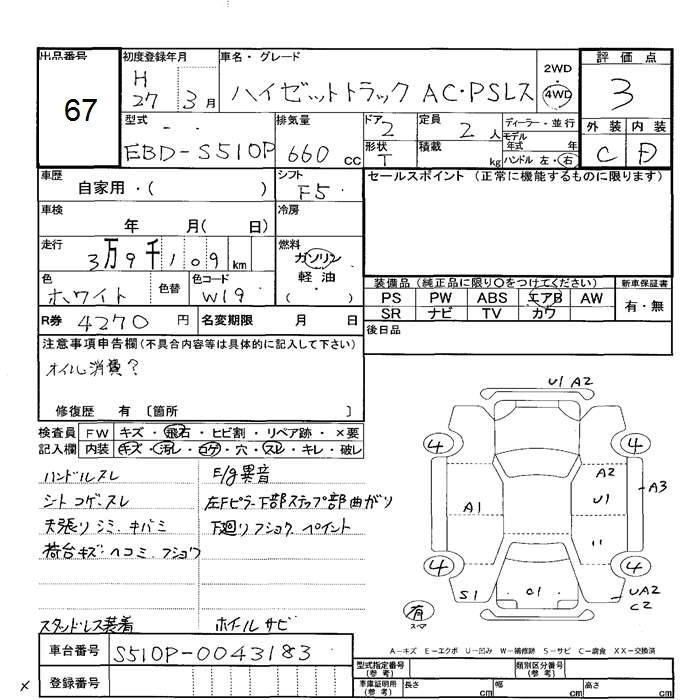 出品番号
67
初度登録年月
H
27 3月
車名・グレード
ハイゼットトラック AC・PSLス
2WD
・
4WD
評価点
3
外装 内装
C D
型式
- -
EBD-S510P
排気量
660 cc
ドア
2
形状
T
定員
2 人
積載
kg
ディーラー・並行
モデル
年式 年
ハンドル 左・右
車歴
自家用・( )
シフト
F5
セールスポイント (正常に機能するものに限ります)
車検
年 月( 日)
冷房
走行
3万9千109 km
燃料
ガソリン
軽油
( )
色
ホワイト
色替
色コード
W19
装備品 (純正品に限り○をつけてください)
新車保証書
PS PW ABS エアB AW
SR ナビ TV カワ
有・無
R券 4270 円
名変期限 月 日
後日品
注意事項申告欄(不具合内容等は具体的に記入して下さい)
オイル消費?
修復歴 有 〔箇所 〕
検査員 FW キズ・飛石・ヒビ割・リペア跡・×要
記入欄 内装 キズ・汚レ・コゲ・穴・スレ・キレ・破レ
ハンドルスレ
E/g異音
シートコゲ、スレ
左Fピラー下部ステップ部曲がり
天張りシミ、キバミ
下廻りフショク、ペイント
荷台キズ・ヘコミ、フショク
スタッドレス装着
ホイルサビ
U1 A2
4
4
A2
A1
U1
A3
4
4
S1
C1
UA2
C2
有
スペア
A-キズ E-エクボ U-凹み W-補修跡 S-サビ C-腐食 XX-交換済
車台番号 S510P-0043183
登録番号
×
型式指定番号
(参考)
類別区分番号
(参考)
車庫証明用
(参考)
長さ cm
幅 cm
高さ cm